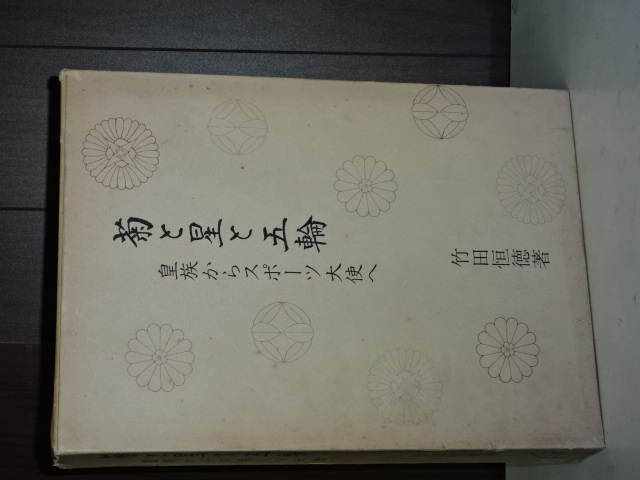 菊と星と五輪
皇族からスポーツ大使へ
竹田恒徳著